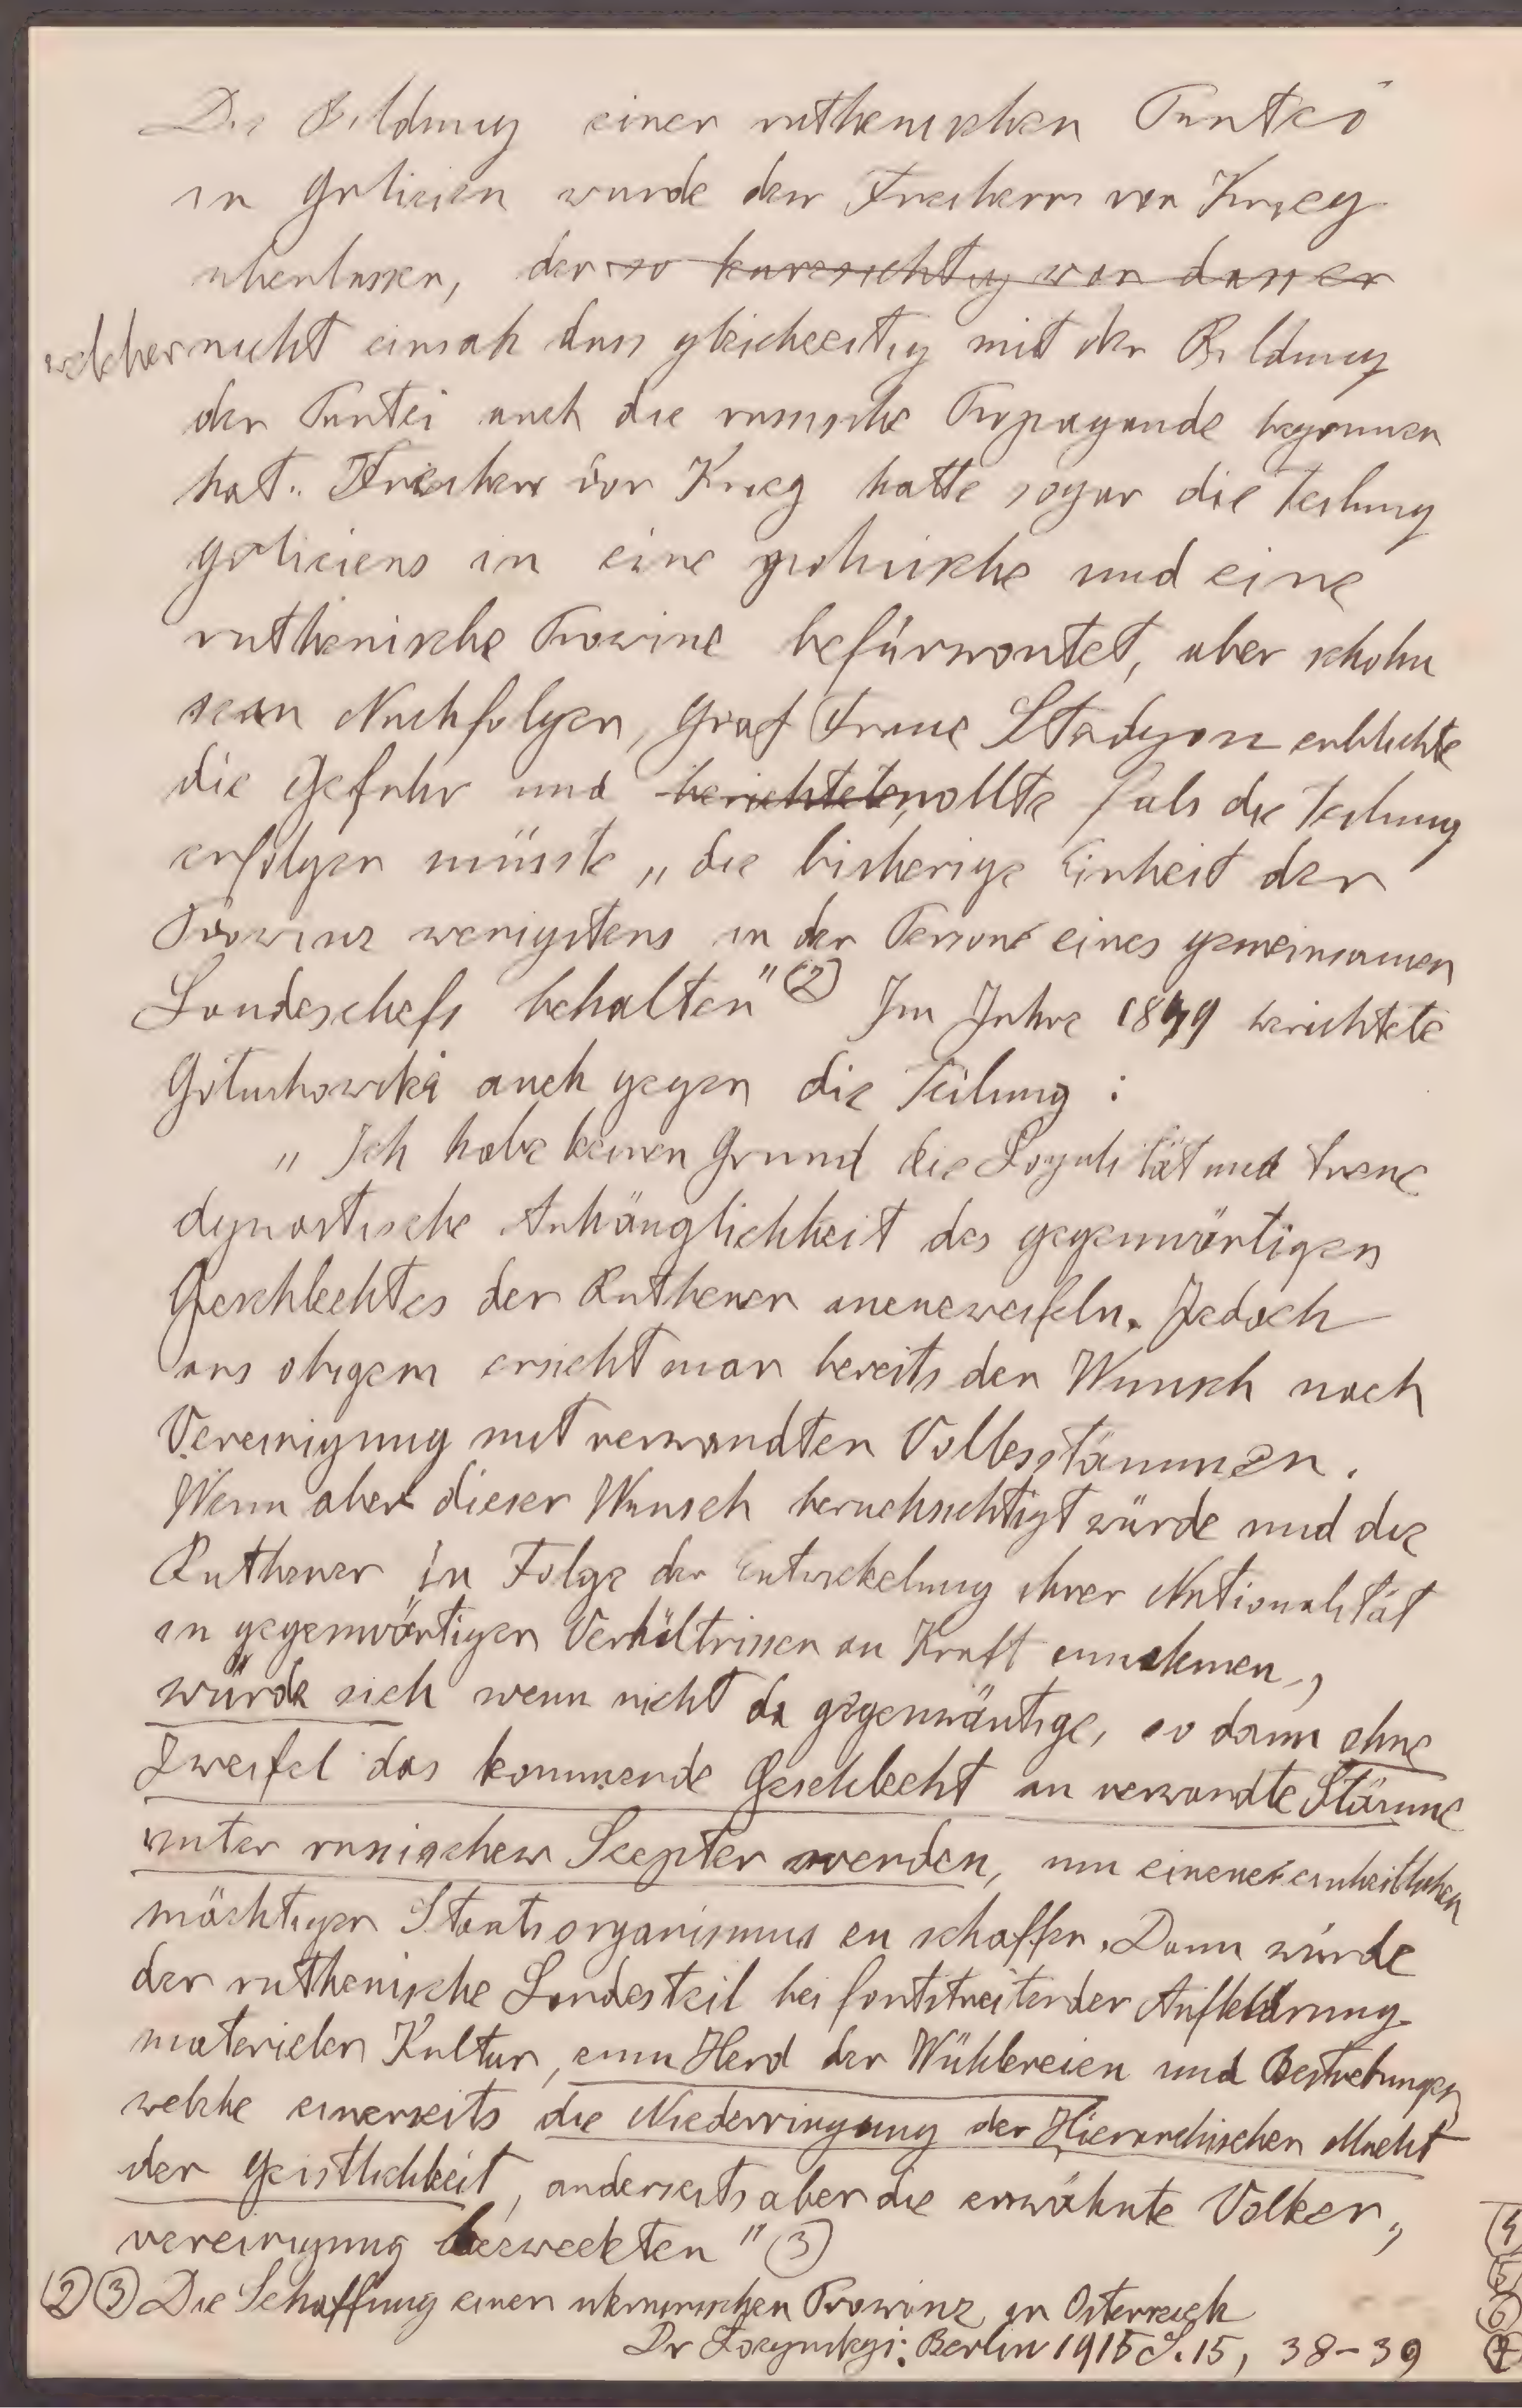 Die Bildung einer ruthenischen Partei
in Galizien wurde den Freiherrn von Krieg
uberlassen, der so kurzsichtig war dass er
welcher nicht einsah dass gleichzeitig mit der Bildung
der Partei auch die russische Propagande begonnen
hat. Freiherr von Krieg hatte sogar die Teilung
Galiziens in eine polnische und eine
ruthenische Provinz befürwortet, aber schohn
sein Nachfolger, Graf Franz Stadyon erblickte
die Gefahr und berichtete, wollte fals die Teilung
erfolgen müsste „die bisherige Einheit der
Provinz wenigstens in der Person eines gemeinsamen
Landeschefs behalten" (2) Im Jahre 1849 berichtete
Gołuchowski auch gegen die Teilung :
„Ich habe keinen Grund die Loyalität und treue
dynastische Anhänglichkeit des gegenwärtigen
Geschlechtes der Ruthener anzuzweifeln. Jedoch
aus obigem ersieht man bereits den Wunsch nach
Vereinigung mit verwandten Volksstämmen.
Wenn aber dieser Wunsch beruchsichtigt würde und die
Ruthener in Folge der Entwickelung ihrer Nationalität
in gegenwärtigen Verhältnissen an Kraft zunnehmen,
würde sich wenn nicht da gegenwärtige, so dann ohne
Zweifel das kommende Geschlecht an verwandte Stämme
unter russischem Scepter wenden, um einen einheitlichen
mächtigen Staatsorganismus zu schaffen. Dann würde
der ruthenische Landesteil bei fortstreitender Aufklärung
materielen Kultur, zum Herd der Wühlereien und Bestrebungen
welche einerseits die Niederringung der Hierarchischen Macht
der Geistlichkeit, anderseits aber die erwähnte Volker,,
vereinigung bezweckten" (3)
(2) (3) Die Schaffung einer ukrainischen Provinz in Osterreich
Dr Łozynskyi: Berlin 1915 S. 15, 38-39
(4)
(5)
(6)
(7)